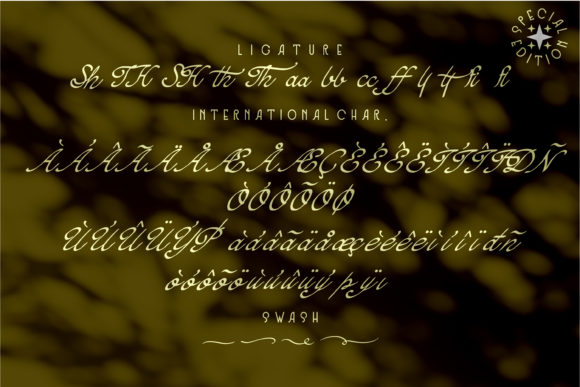 SPECIAL EDITION
LIGATURE
Sh TH SH th Th aa bb cc ff
INTERNATIONAL CHAR.
ÀÁÂÃÄÅÆÅÆÇÈÉÊËÌÍÎÏÐÑ
ÒÓÔÕÖØ
ÙÚÛÜÝÞ àáâãäåæçèéêëìíîïđñ
òóôõöùúûüýþÿı
SWASH